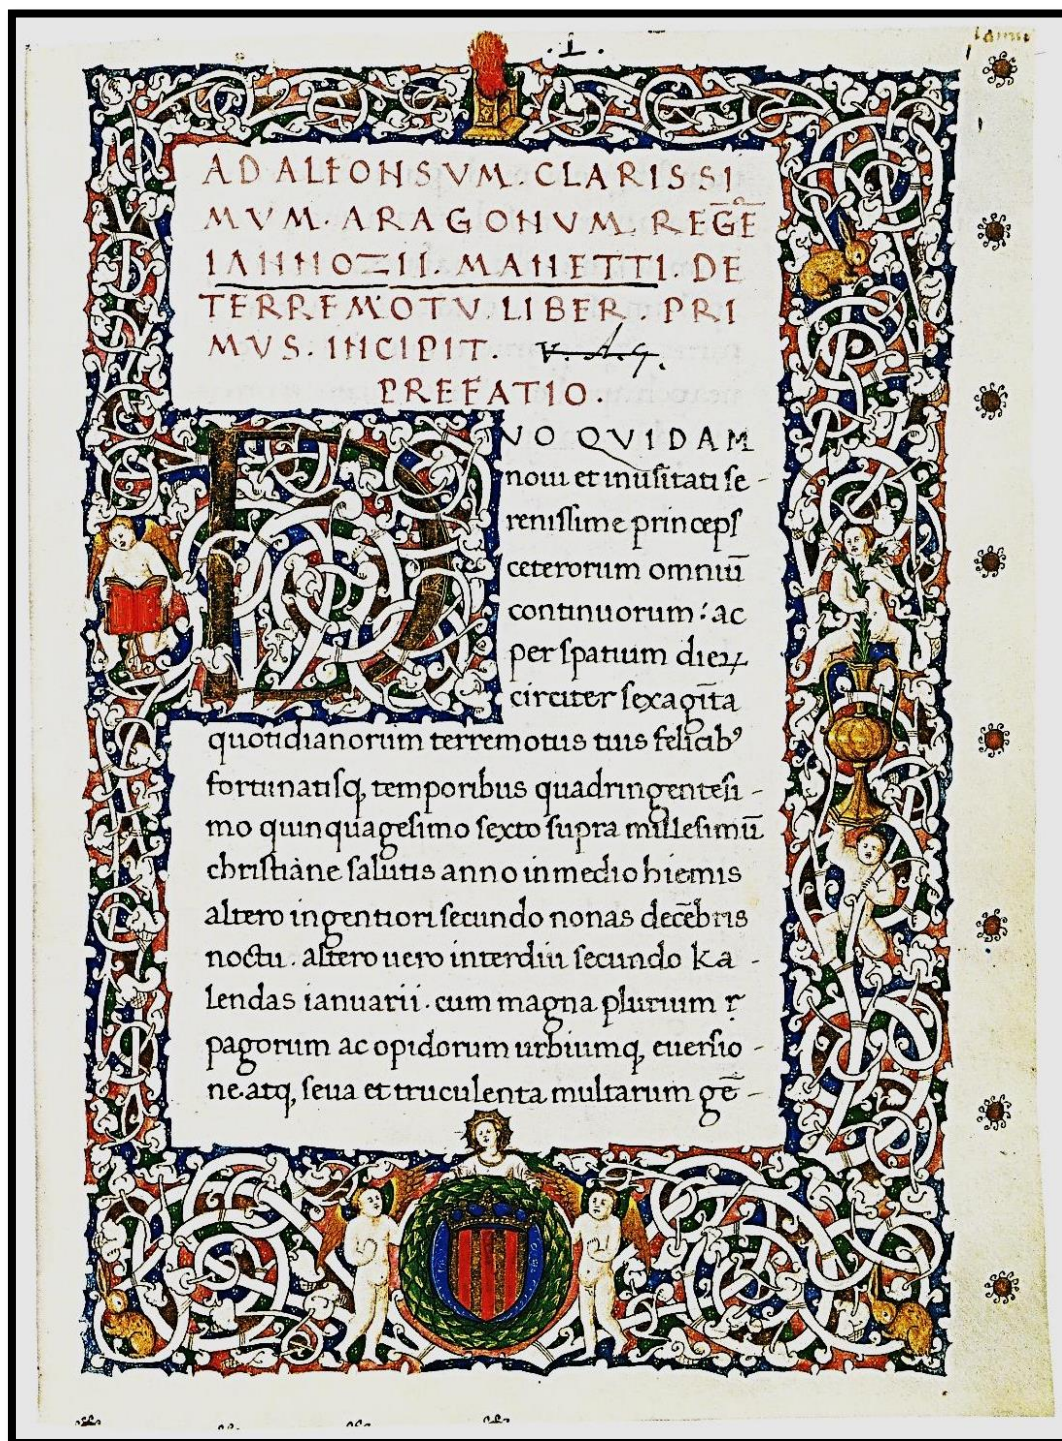 .I.
AD ALFONSVM. CLARISSI
MVM. ARAGONVM. REGĒ
IANNOZII. MANETTI. DE
TERREMOTV. LIBER. PRI
MVS. INCIPIT.
PREFATIO.
DVO QVIDAM
noui et inusitati se-
renissime princeps
ceterorum omniū
continuorum: ac
per spatium dieꝝ
circiter sexagīta
quotidianorum terremotus tuis felicibꝰ
fortunatisq, temporibus quadringentesi-
mo quinquagesimo sexto supra millesimū
christiane salutis anno in medio hiemis
altero ingentiori secundo nonas decēbris
noctu. altero uero interdiu secundo ka-
lendas ianuarii. cum magna plurium
pagorum ac opidorum urbiumq, euersio-
ne. atq, seua et truculenta multarum gē-